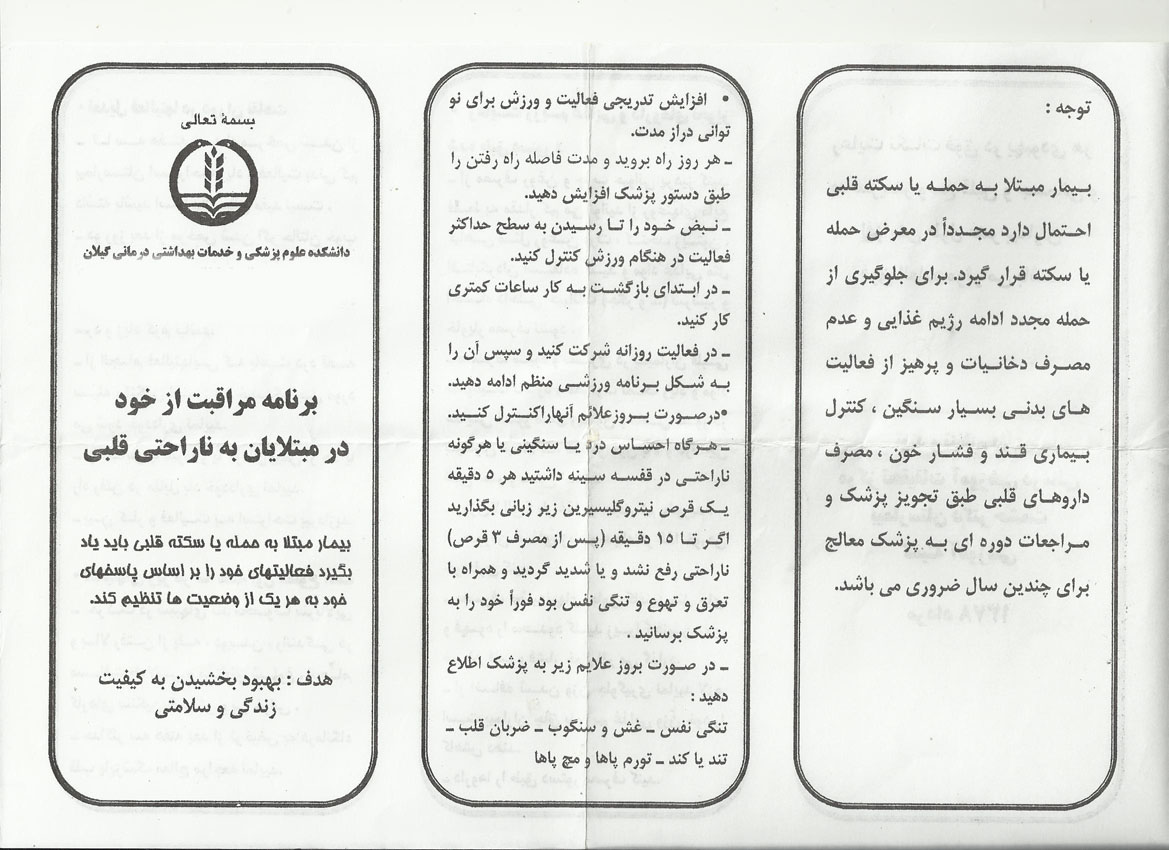 توجه :
بیمار مبتلا به حمله یا سکته قلبی
احتمال دارد مجدداً در معرض حمله
یا سکته قرار گیرد. برای جلوگیری از
حمله مجدد ادامه رژیم غذایی و عدم
مصرف دخانیات و پرهیز از فعالیت
های بدنی بسیار سنگین ، کنترل
بیماری قند و فشار خون ، مصرف
داروهای قلبی طبق تجویز پزشک و
مراجعات دوره ای به پزشک معالج
برای چندین سال ضروری می باشد.
• افزایش تدریجی فعالیت و ورزش برای نو
توانی دراز مدت.
ـ هر روز راه بروید و مدت فاصله راه رفتن را
طبق دستور پزشک افزایش دهید.
ـ نبض خود را تا رسیدن به سطح حداکثر
فعالیت در هنگام ورزش کنترل کنید.
ـ در ابتدای بازگشت به کار ساعات کمتری
کار کنید.
ـ در فعالیت روزانه شرکت کنید و سپس آن را
به شکل برنامه ورزشی منظم ادامه دهید.
•درصورت بروزعلائم آنهاراکنترل کنید.
ـ هرگاه احساس درد یا سنگینی یا هرگونه
ناراحتی در قفسه سینه داشتید هر ۵ دقیقه
یک قرص نیتروگلیسیرین زیر زبانی بگذارید
اگر تا ۱۵ دقیقه (پس از مصرف ۳ قرص)
ناراحتی رفع نشد و یا شدید گردید و همراه با
تعرق و تهوع و تنگی نفس بود فوراً خود را به
پزشک برسانید .
ـ در صورت بروز علایم زیر به پزشک اطلاع
دهید :
تنگی نفس ـ غش و سنگوب ـ ضربان قلب ـ
تند یا کند ـ تورم پاها و مچ پاها
بسمهٔ تعالی
دانشکده علوم پزشکی و خدمات بهداشتی درمانی گیلان
برنامه مراقبت از خود
در مبتلایان به ناراحتی قلبی
بیمار مبتلا به حمله یا سکته قلبی باید یاد
بگیرد فعالیتهای خود را بر اساس پاسخهای
خود به هر یک از وضعیت ها تنظیم کند.
هدف : بهبود بخشیدن به کیفیت
زندگی و سلامتی